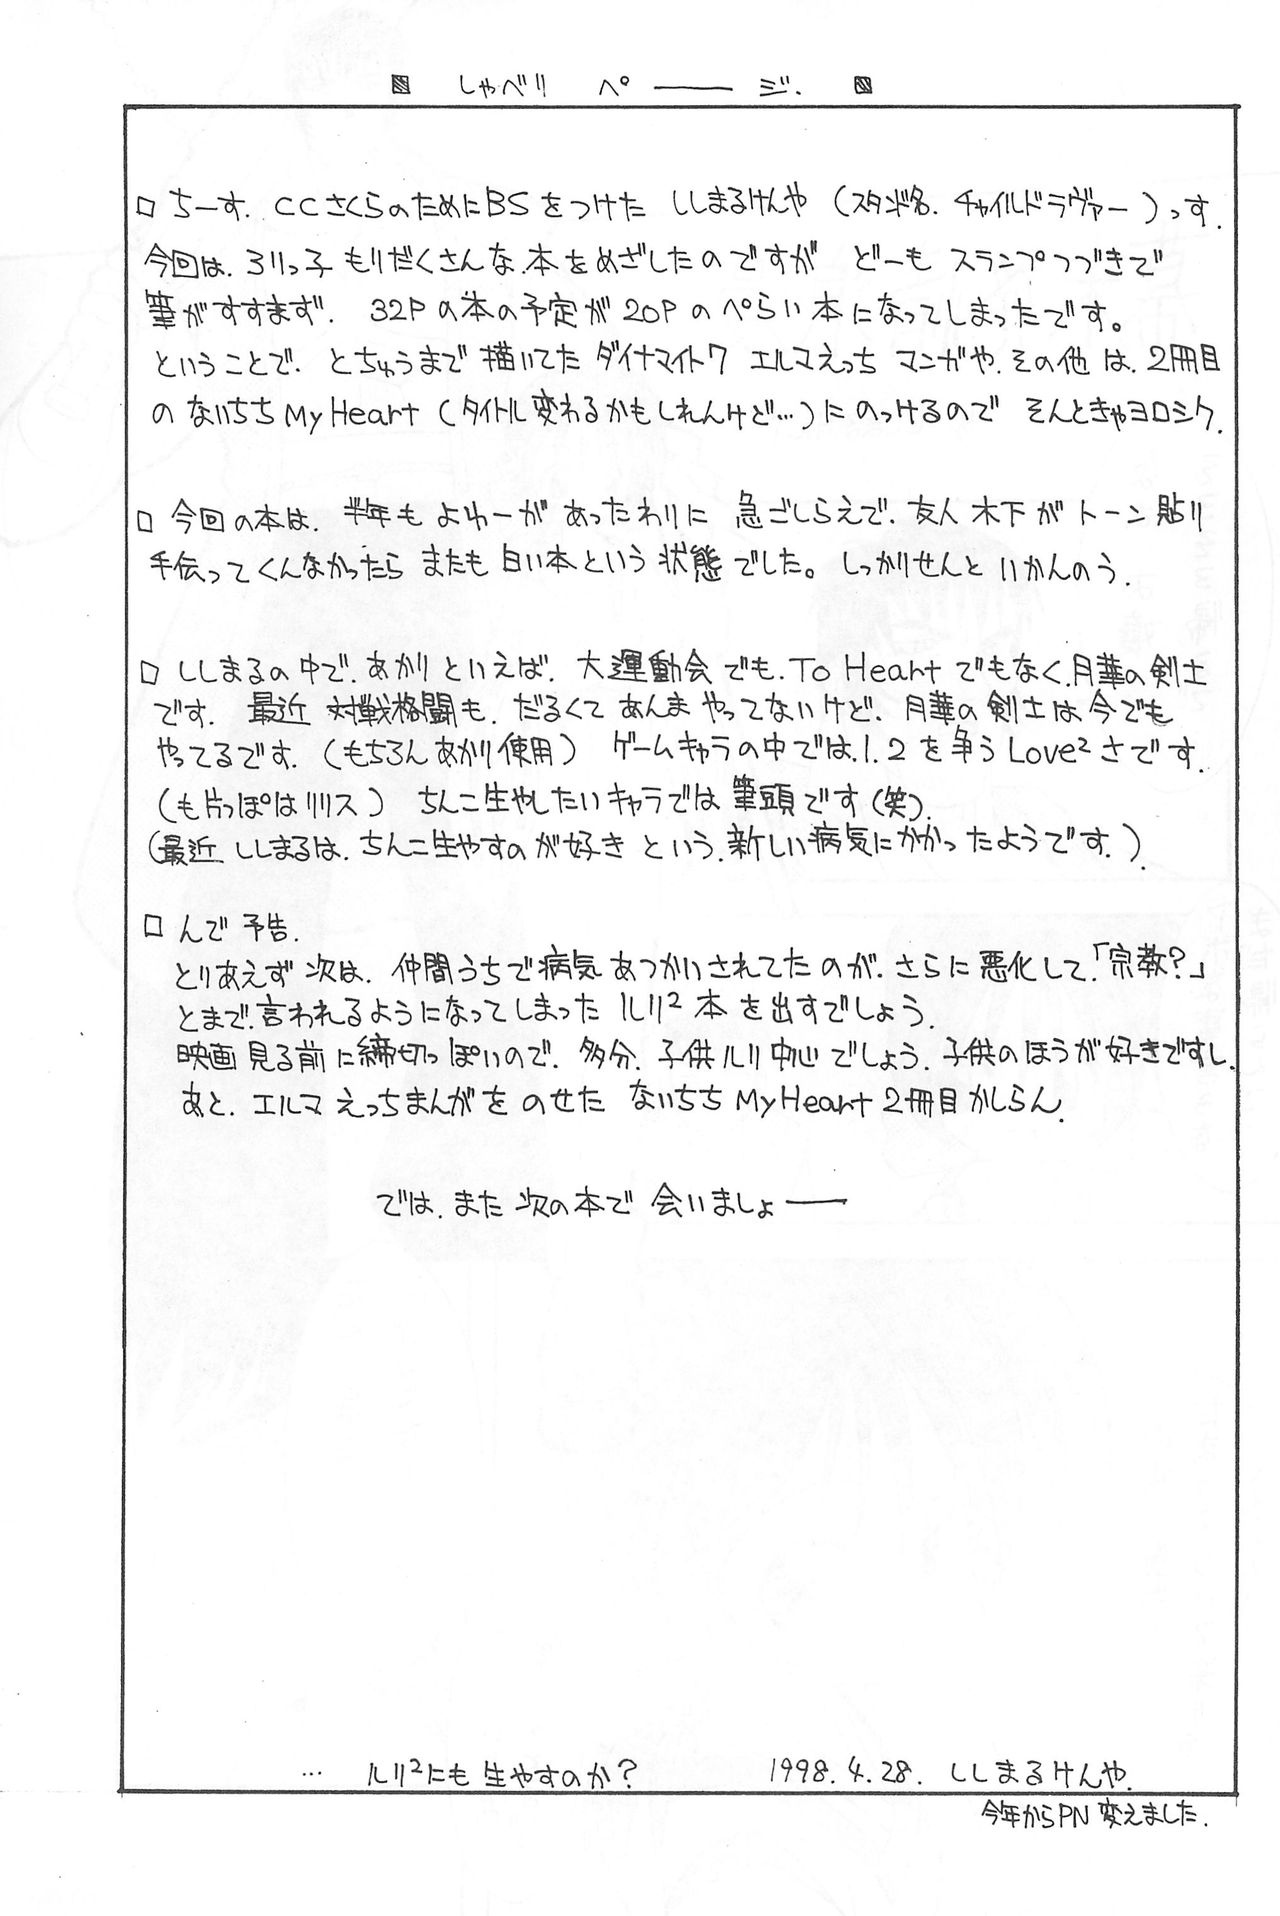 しゃべり ペ――ジ.
□ ちーす. CCさくらのためにBSをつけた ししまるけんや (スタンド名. チャイルドラヴァー)っす.
今回は. ろりっ子 もりだくさんな.本をめざしたのですが どーも スランプつづきで
筆がすすまず. 32Pの本の予定が20Pのぺらい本になってしまったです。
ということで. とちゅうまで描いてた ダイナマイト7 エルマえっち マンガや.その他は. 2冊目
の ないちち My Heart (タイトル変わるかもしれんけど…)にのっけるので そんときゃヨロシク.
□ 今回の本は. 半年も よゆーが あったわりに 急ごしらえで. 友人 木下が トーン貼り
手伝ってくんなかったら またも 白い本という 状態でした。 しっかりせんと いかんのう.
□ ししまるの中で.あかりといえば. 大運動会でも.To Heartでもなく.月華の剣士
です. 最近 対戦格闘も. だるくて あんま やってないけど. 月華の剣士は今でも
やってるです. (もちろんあかり使用) ゲームキャラの中では.1.2を争うLove²さです.
(も片っぽはリリス) ちんこ生やしたいキャラでは 筆頭です(笑).
(最近 ししまるは. ちんこ生やすのが好き という.新しい病気にかかったようです.)
□ んで 予告.
とりあえず 次は. 仲間うちで病気 あつかいされてたのが. さらに 悪化して.「宗教?」
とまで.言われるようになってしまった ルリ² 本を出すでしょう.
映画 見る前に締切っぽいので. 多分. 子供ルリ中心でしょう. 子供のほうが好きですし.
あと. エルマ えっちまんがを のせた ないちち My Heart 2冊目かしらん.
では. また 次の本で 会いましょ――
… ルリ²にも 生やすのか? 1998. 4. 28. ししまるけんや.
今年からPN 変えました.